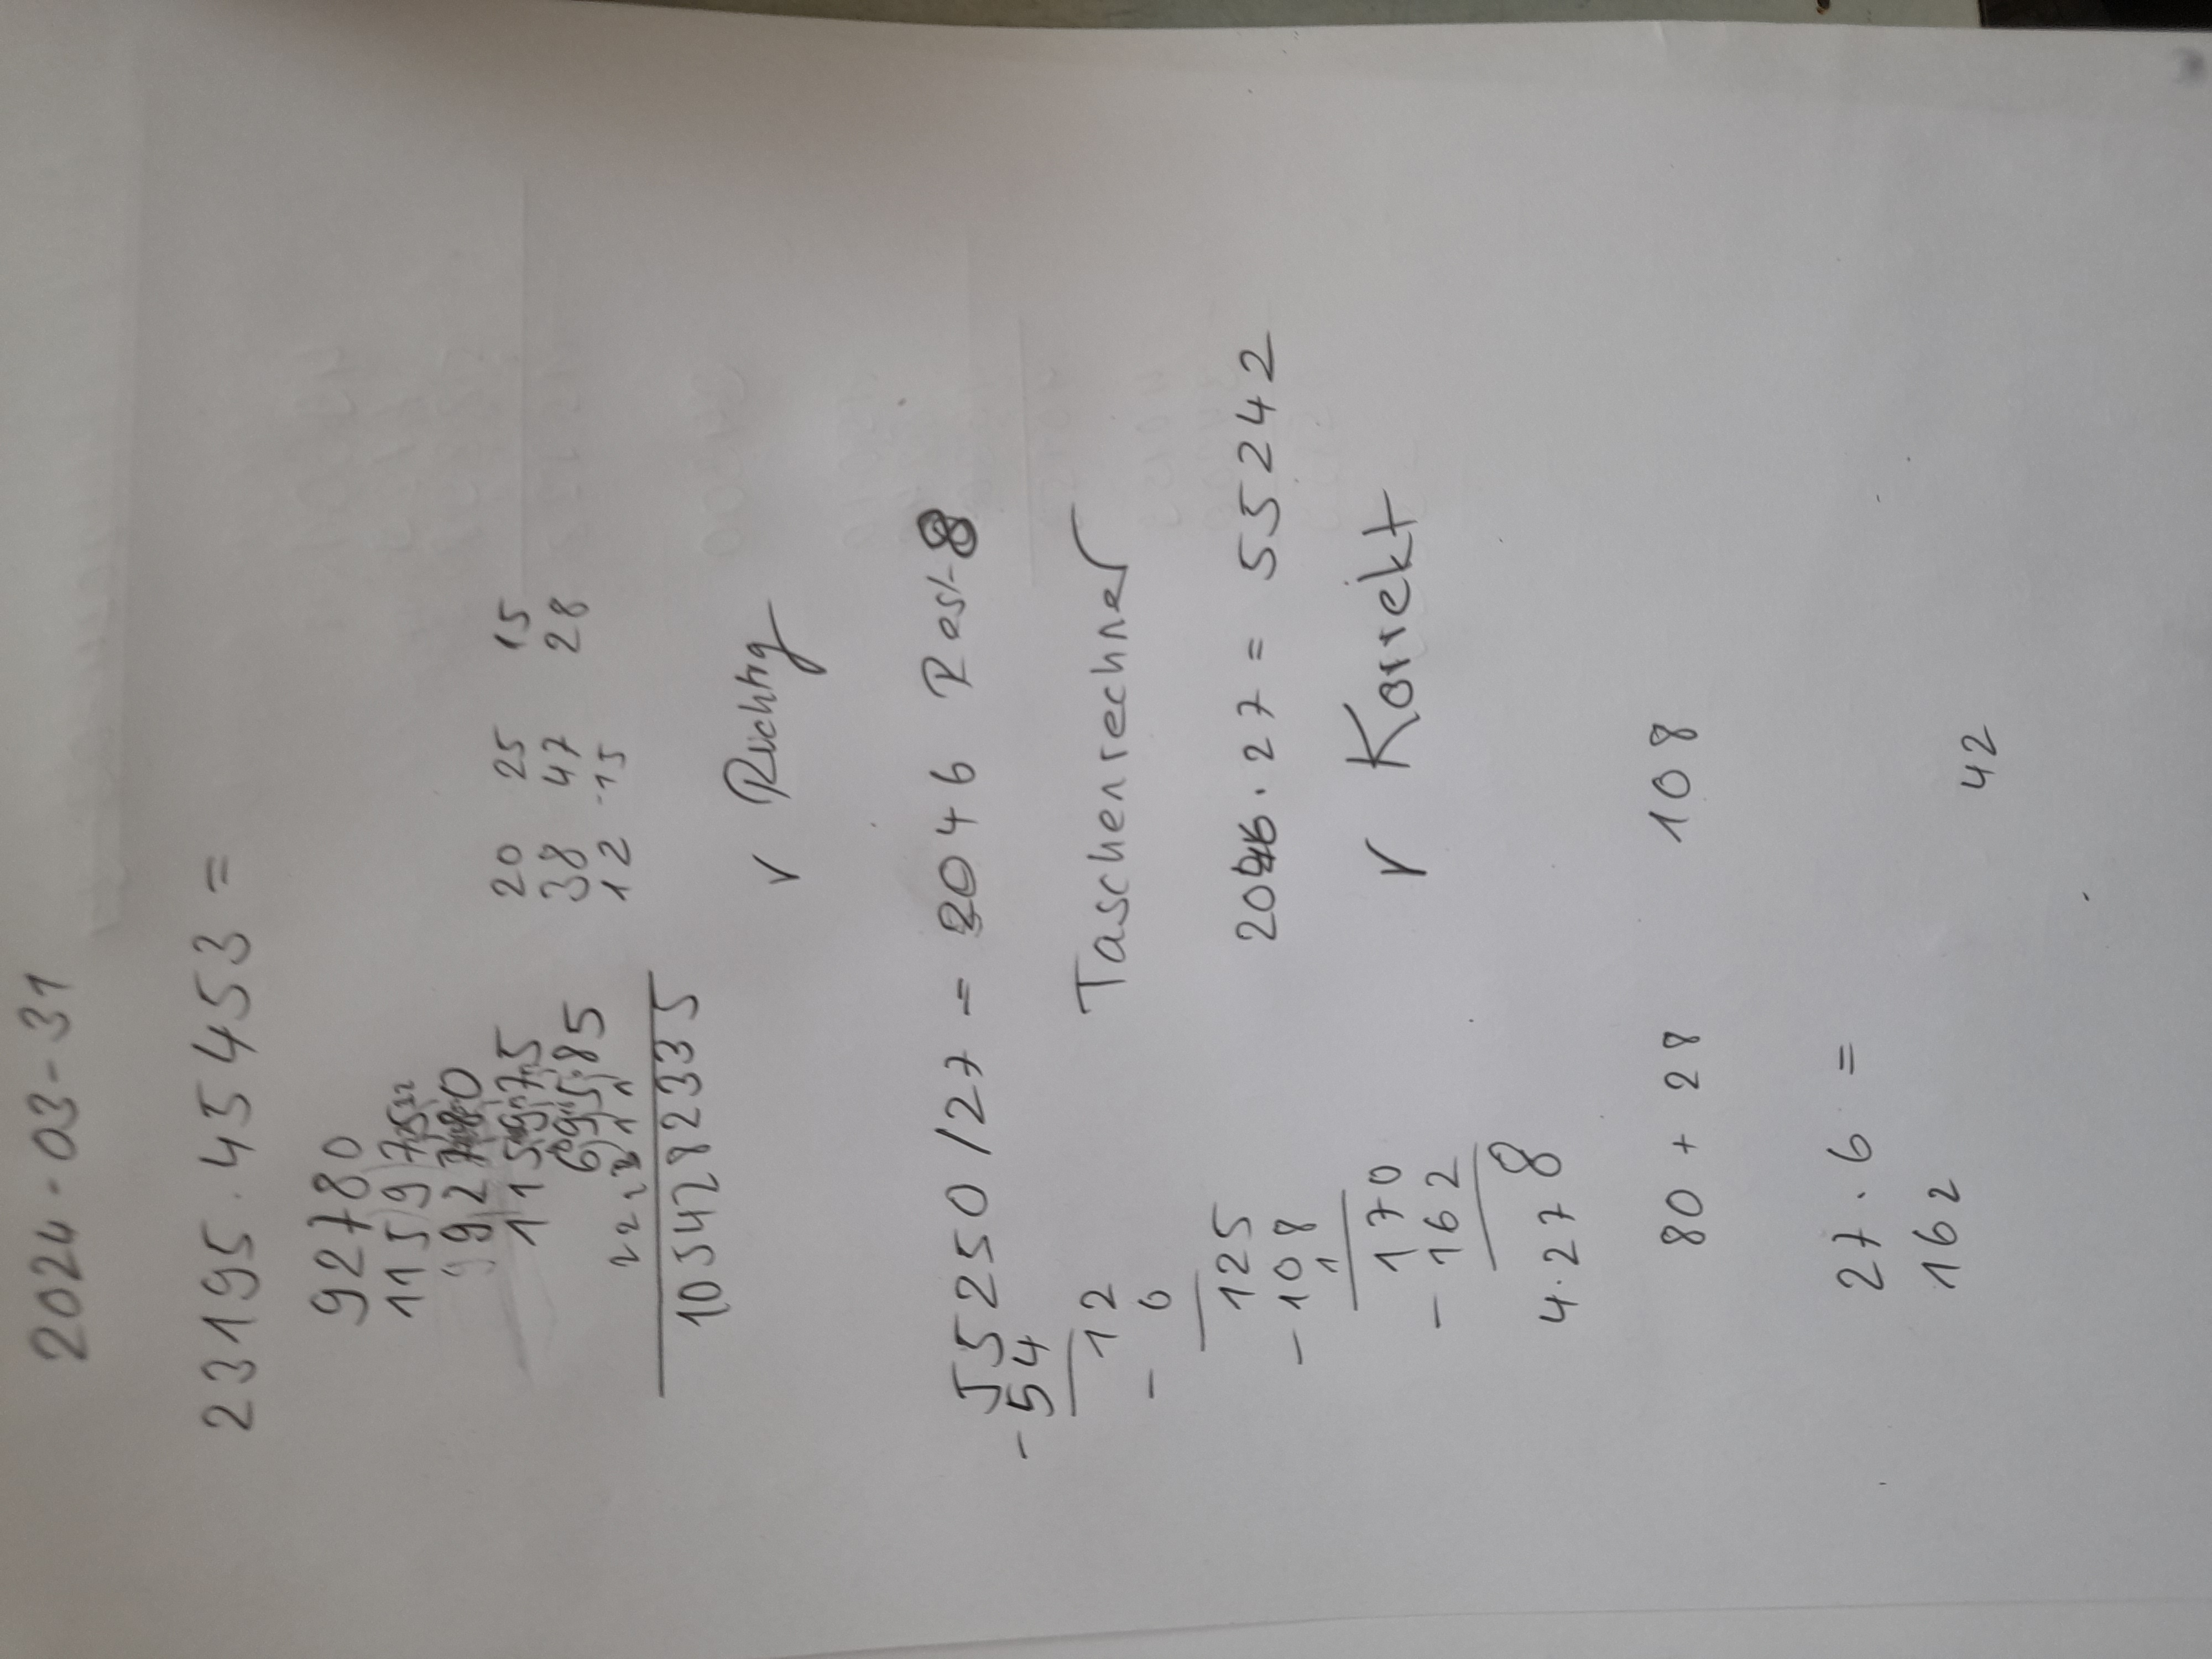 2024-03-31
23195 · 45453 =
92780
115975
92780
115975 20 25 15
69585 38 47 28
12 15
1054282335
v Richtig
55250 / 27 = 2046 Rest 8
-54
12 Taschenrechner
- 0
125 2046 · 27 = 55242
- 108
1
170 v Korrekt
- 162
8
4 · 27
80 + 28 108
27 · 6 =
162 42